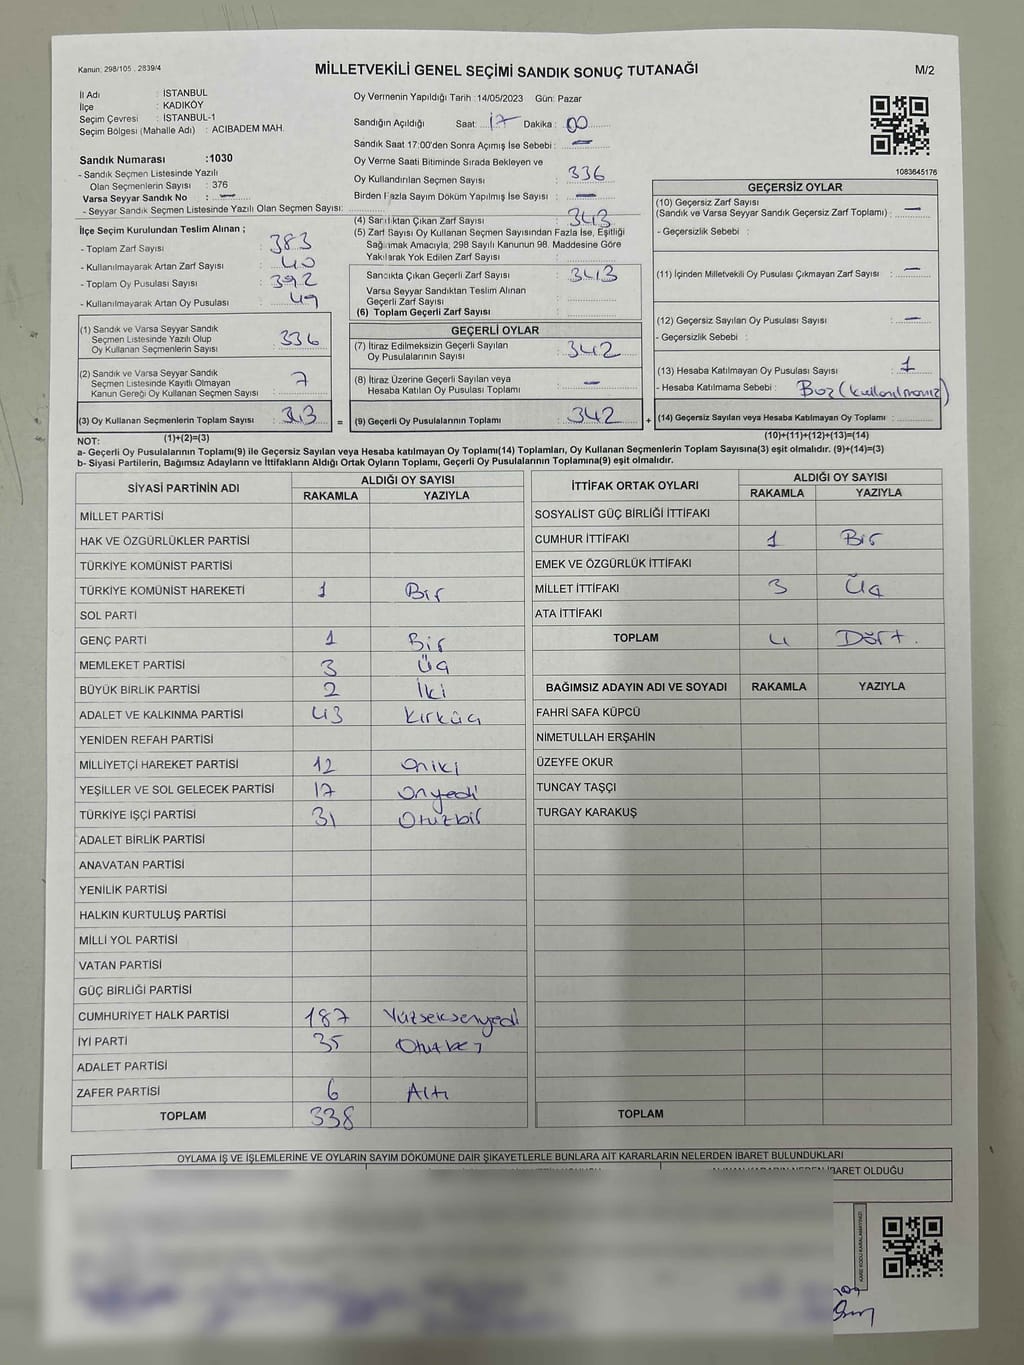 Kanun: 298/105 . 2839/4
MİLLETVEKİLİ GENEL SEÇİMİ SANDIK SONUÇ TUTANAĞI
M/2
İl Adı : İSTANBUL
İlçe : KADIKÖY
Seçim Çevresi : İSTANBUL-1
Seçim Bölgesi (Mahalle Adı) : ACIBADEM MAH.
Sandık Numarası :1030
- Sandık Seçmen Listesinde Yazılı
Olan Seçmenlerin Sayısı : 376
Varsa Seyyar Sandık No : —
- Seyyar Sandık Seçmen Listesinde Yazılı Olan Seçmen Sayısı:
İlçe Seçim Kurulundan Teslim Alınan ;
- Toplam Zarf Sayısı : 383
- Kullanılmayarak Artan Zarf Sayısı : 40
- Toplam Oy Pusulası Sayısı : 392
- Kullanılmayarak Artan Oy Pusulası : 49
(1) Sandık ve Varsa Seyyar Sandık
Seçmen Listesinde Yazılı Olup
Oy Kullanan Seçmenlerin Sayısı : 336
(2) Sandık ve Varsa Seyyar Sandık
Seçmen Listesinde Kayıtlı Olmayan
Kanun Gereği Oy Kullanan Seçmen Sayısı : 7
(3) Oy Kullanan Seçmenlerin Toplam Sayısı : 343
Oy Vermenin Yapıldığı Tarih :14/05/2023 Gün: Pazar
Sandığın Açıldığı Saat: 17 Dakika : 00
Sandık Saat 17:00'den Sonra Açımış İse Sebebi : —
Oy Verme Saati Bitiminde Sırada Bekleyen ve
Oy Kullandırılan Seçmen Sayısı : 336
Birden Fazla Sayım Döküm Yapılmış İse Sayısı : —
(4) Sandıktan Çıkan Zarf Sayısı : 343
(5) Zarf Sayısı Oy Kullanan Seçmen Sayısından Fazla İse, Eşitliği
Sağlamak Amacıyla, 298 Sayılı Kanunun 98. Maddesine Göre
Yakılarak Yok Edilen Zarf Sayısı :
Sandıkta Çıkan Geçerli Zarf Sayısı : 343
Varsa Seyyar Sandıktan Teslim Alınan
Geçerli Zarf Sayısı :
(6) Toplam Geçerli Zarf Sayısı :
GEÇERLİ OYLAR
(7) İtiraz Edilmeksizin Geçerli Sayılan
Oy Pusulalarının Sayısı : 342
(8) İtiraz Üzerine Geçerli Sayılan veya
Hesaba Katılan Oy Pusulası Toplamı : —
= (9) Geçerli Oy Pusulalarının Toplamı : 342 +
1083645176
GEÇERSİZ OYLAR
(10) Geçersiz Zarf Sayısı
(Sandık ve Varsa Seyyar Sandık Geçersiz Zarf Toplamı) : —
- Geçersizlik Sebebi :
(11) İçinden Milletvekili Oy Pusulası Çıkmayan Zarf Sayısı : —
(12) Geçersiz Sayılan Oy Pusulası Sayısı : —
- Geçersizlik Sebebi :
(13) Hesaba Katılmayan Oy Pusulası Sayısı : 1
- Hesaba Katılmama Sebebi : Boş (kullanılmamış)
(14) Geçersiz Sayılan veya Hesaba Katılmayan Oy Toplamı :
NOT: (1)+(2)=(3) (10)+(11)+(12)+(13)=(14)
a- Geçerli Oy Pusulasının Toplamı(9) ile Geçersiz Sayılan veya Hesaba katılmayan Oy Toplamı(14) Toplamları, Oy Kullanan Seçmenlerin Toplam Sayısına(3) eşit olmalıdır. (9)+(14)=(3)
b- Siyasi Partilerin, Bağımsız Adayların ve İttifakların Aldığı Ortak Oyların Toplamı, Geçerli Oy Pusulalarının Toplamına(9) eşit olmalıdır.
SİYASİ PARTİNİN ADI ALDIĞI OY SAYISI
RAKAMLA YAZIYLA
MİLLET PARTİSİ
HAK VE ÖZGÜRLÜKLER PARTİSİ
TÜRKİYE KOMÜNİST PARTİSİ
TÜRKİYE KOMÜNİST HAREKETİ 1 Bir
SOL PARTİ
GENÇ PARTİ 1 Bir
MEMLEKET PARTİSİ 3 Üç
BÜYÜK BİRLİK PARTİSİ 2 İki
ADALET VE KALKINMA PARTİSİ 43 Kırküç
YENİDEN REFAH PARTİSİ
MİLLİYETÇİ HAREKET PARTİSİ 12 Oniki
YEŞİLLER VE SOL GELECEK PARTİSİ 17 Onyedi
TÜRKİYE İŞÇİ PARTİSİ 31 Otuzbir
ADALET BİRLİK PARTİSİ
ANAVATAN PARTİSİ
YENİLİK PARTİSİ
HALKIN KURTULUŞ PARTİSİ
MİLLİ YOL PARTİSİ
VATAN PARTİSİ
GÜÇ BİRLİĞİ PARTİSİ
CUMHURİYET HALK PARTİSİ 187 Yüzseksenyedi
İYİ PARTİ 35 Otuzbeş
ADALET PARTİSİ
ZAFER PARTİSİ 6 Altı
TOPLAM 338
İTTİFAK ORTAK OYLARI ALDIĞI OY SAYISI
RAKAMLA YAZIYLA
SOSYALİST GÜÇ BİRLİĞİ İTTİFAKI
CUMHUR İTTİFAKI 1 Bir
EMEK VE ÖZGÜRLÜK İTTİFAKI
MİLLET İTTİFAKI 3 Üç
ATA İTTİFAKI
TOPLAM 4 Dört.
BAĞIMSIZ ADAYIN ADI VE SOYADI RAKAMLA YAZIYLA
FAHRİ SAFA KÜPCÜ
NİMETULLAH ERŞAHİN
ÜZEYFE OKUR
TUNCAY TAŞÇI
TURGAY KARAKUŞ
TOPLAM
OYLAMA İŞ VE İŞLEMLERİNE VE OYLARIN SAYIM DÖKÜMÜNE DAİR ŞİKAYETLERLE BUNLARA AİT KARARLARIN NELERDEN İBARET BULUNDUKLARI
İBARET OLDUĞU
KARE KODU KARALAMAYINIZ!